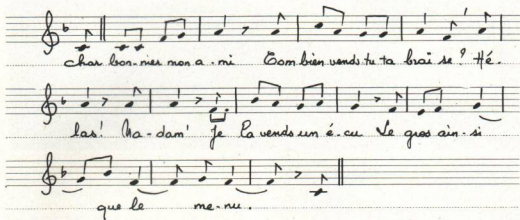 char bon-nier mon a-mi Com bien vends tu ta brai se? Hé-
las! Ma-dam' Je la vends un é-cu Le gros ain-si
que le me-nu.